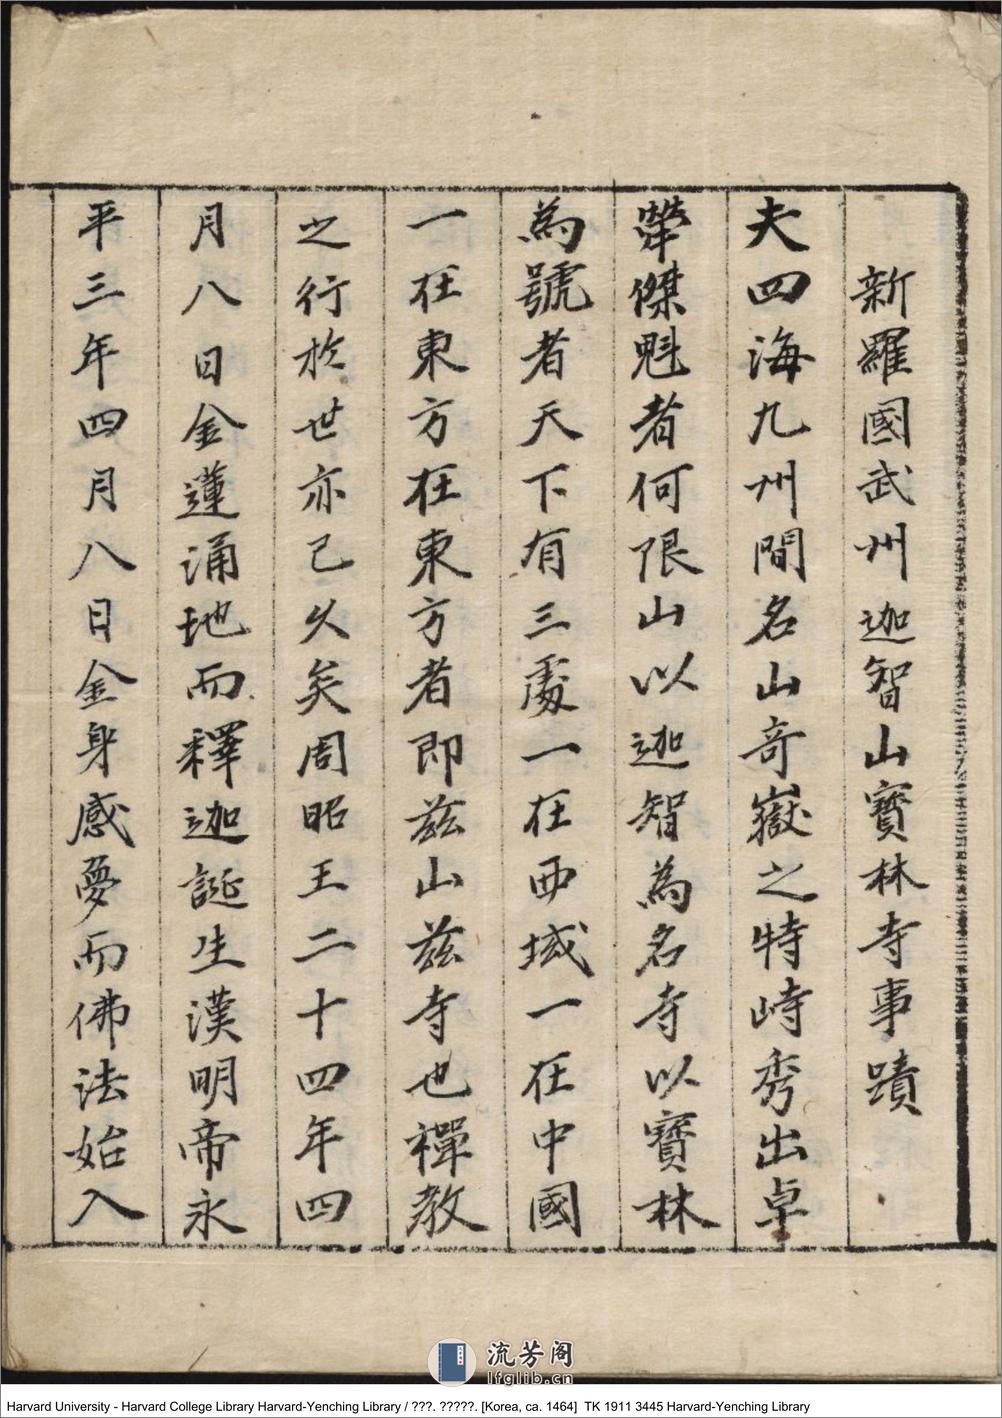 新羅國武州迦智山寶林寺事蹟
夫四海九州間名山奇嶽之特峙秀出卓
犖傑魁者何限山以迦智為名寺以寶林
為號者天下有三處一在西域一在中國
一在東方在東方者即茲山茲寺也禪教
之行於世亦已久矣周昭王二十四年四
月八日金蓮涌地而釋迦誕生漢明帝永
平三年四月八日金身感夢而佛法始入
流芳阁
lfglib.cn
Harvard University - Harvard College Library Harvard-Yenching Library / ???. ?????. [Korea, ca. 1464] TK 1911 3445 Harvard-Yenching Library